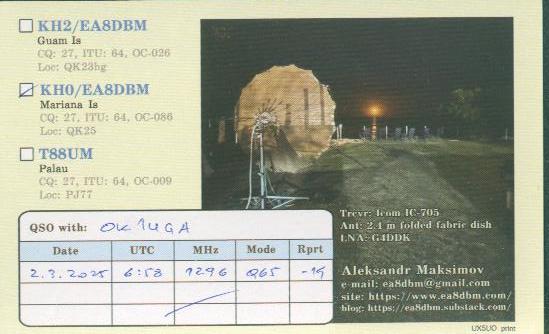 KH2/EA8DBM
Guam Is
CQ: 27, ITU: 64, OC-026
Loc: QK23hg
KH0/EA8DBM
Mariana Is
CQ: 27, ITU: 64, OC-086
Loc: QK25
T88UM
Palau
CQ: 27, ITU: 64, OC-009
Loc: PJ77
QSO with: OK1UGA
Date UTC MHz Mode Rprt
2.3.2025 6:58 1296 Q65 -19
Trcvr: Icom IC-705
Ant: 2.4 m folded fabric dish
LNA: G4DDK
Aleksandr Maksimov
e-mail: ea8dbm@gmail.com
site: https://www.ea8dbm.com/
blog: https://ea8dbm.substack.com/
UX5UO print